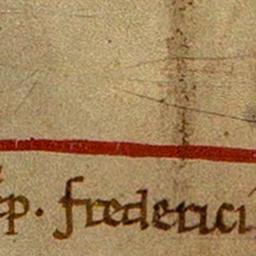 p. frederici